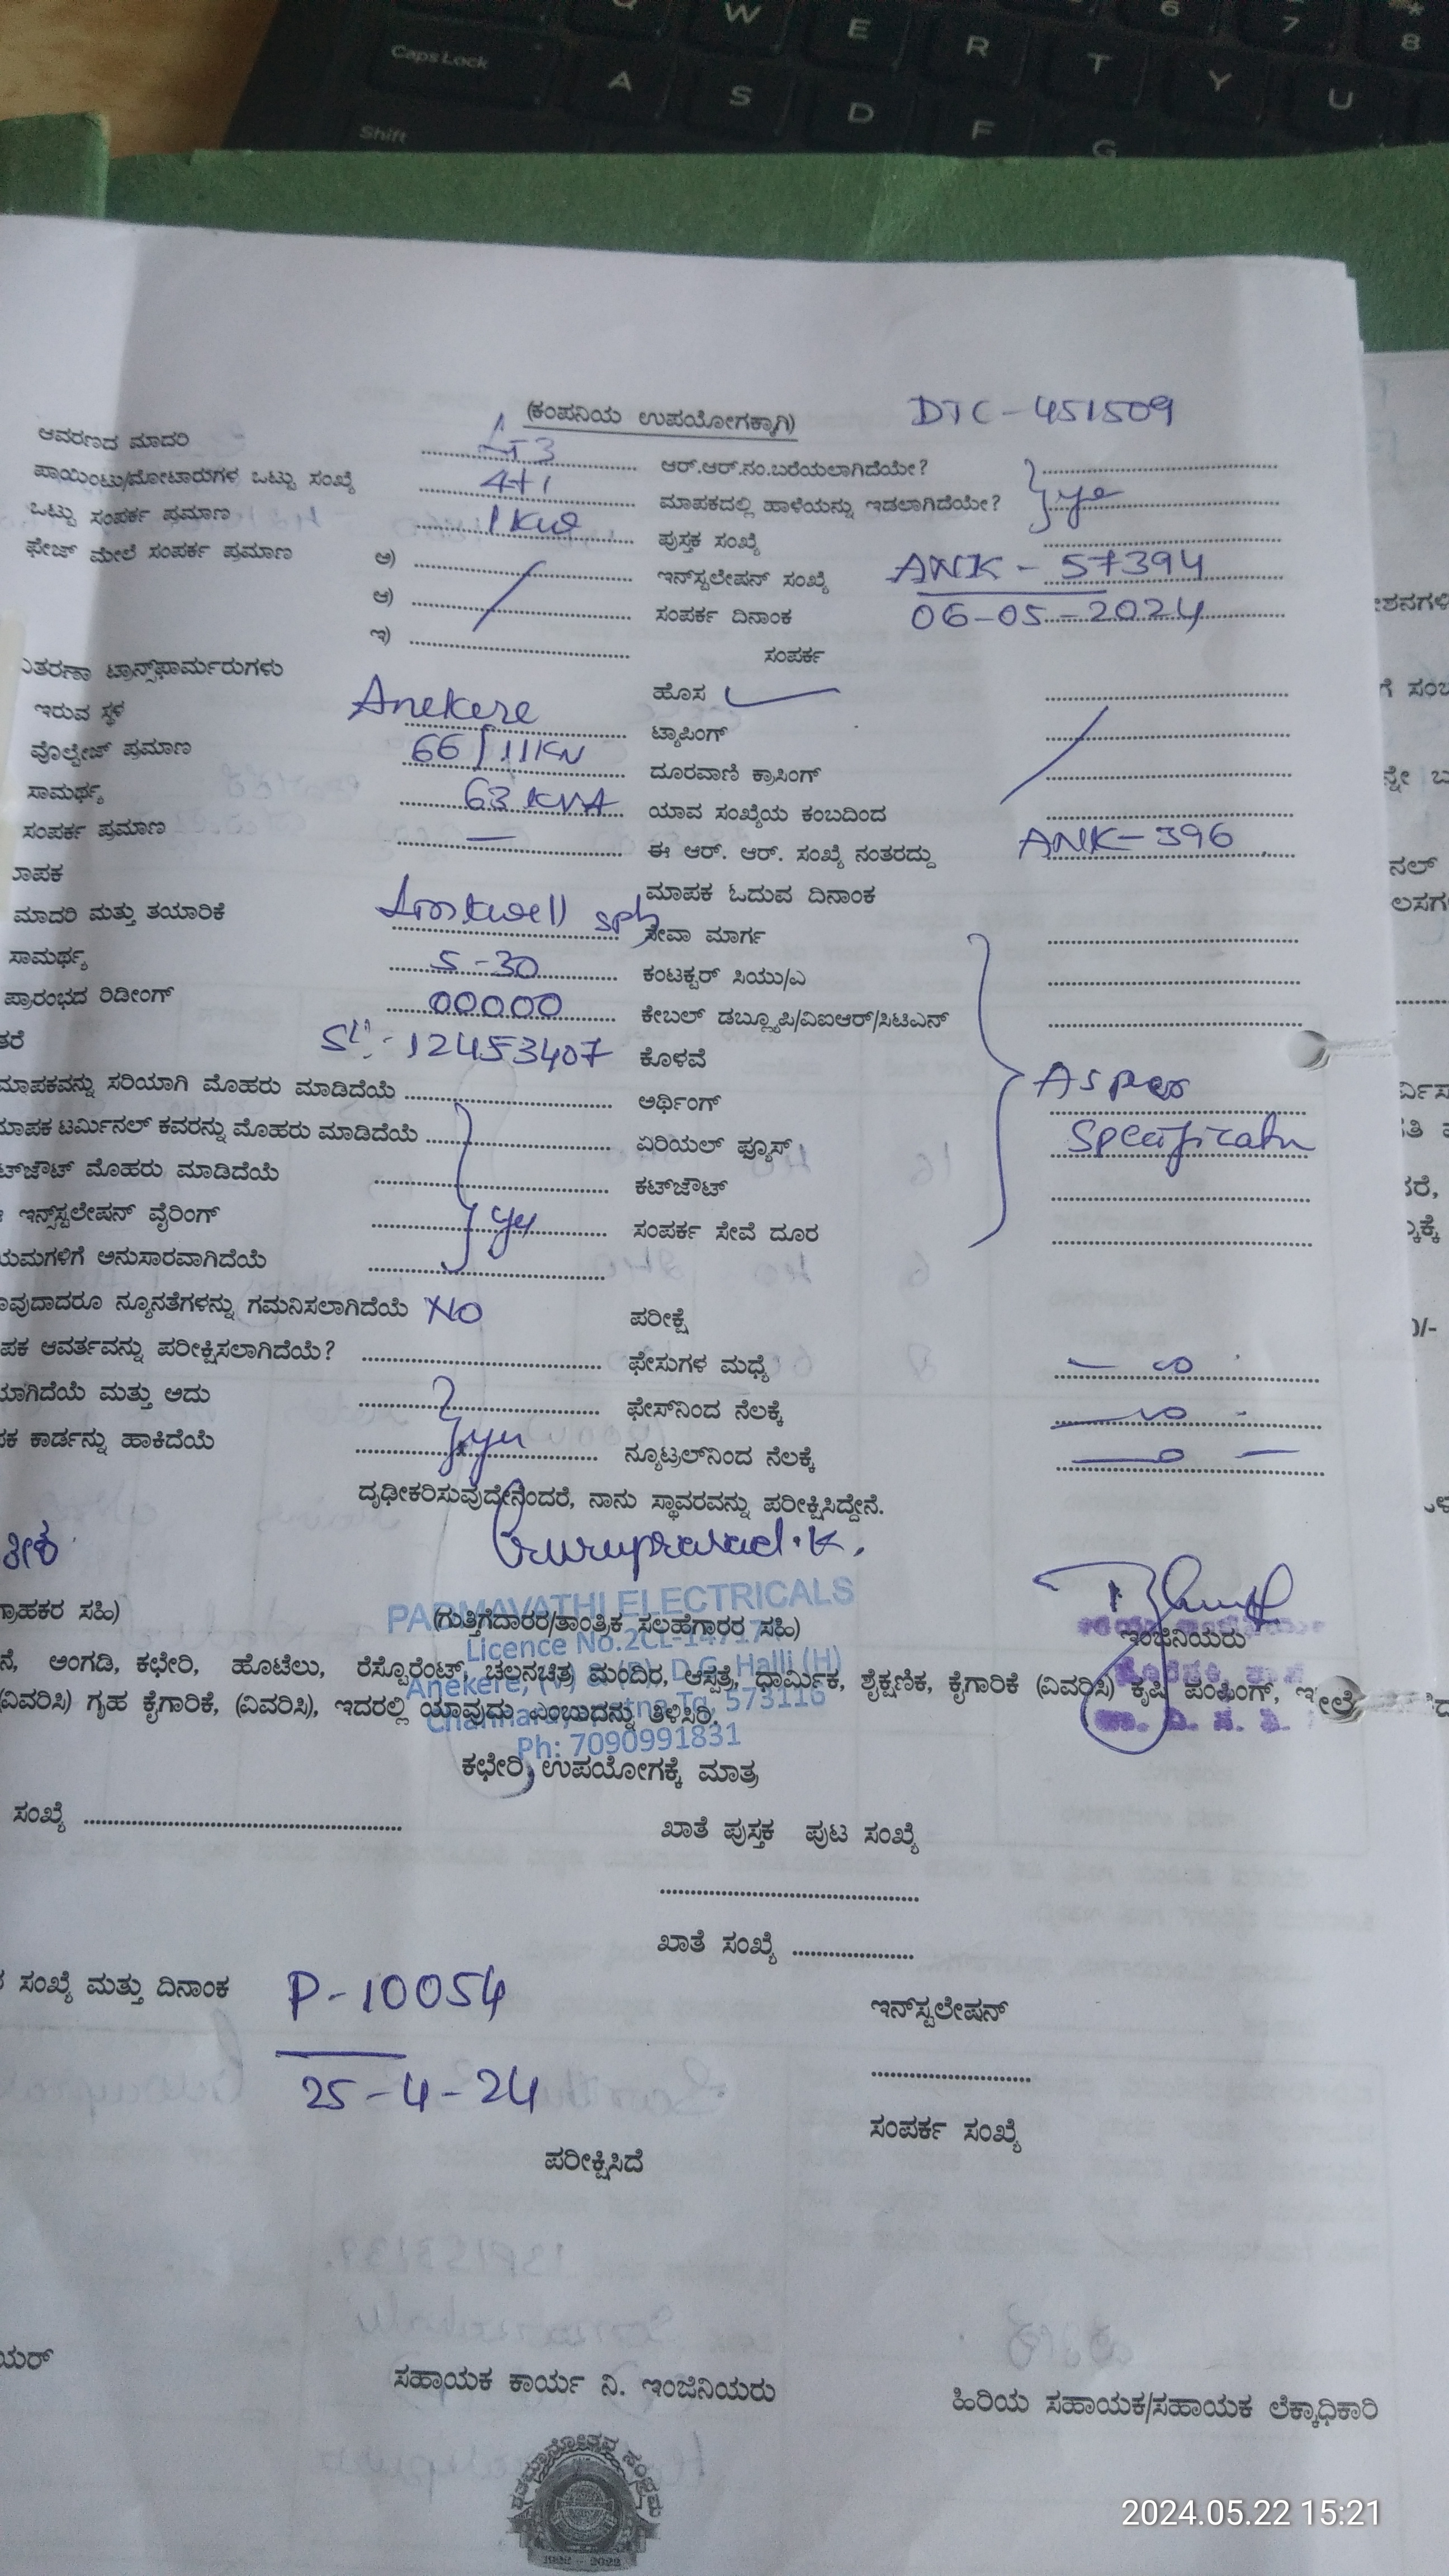 Caps Lock
Shift
W E R T Y U
6 7 8
A S D F G
(ಕಂಪನಿಯ ಉಪಯೋಗಕ್ಕಾಗಿ) DTC - 451509
ಆವರಣದ ಮಾದರಿ LT3 ಆರ್.ಆರ್.ನಂ.ಬರೆಯಲಾಗಿದೆಯೇ?
ಪಾಯಿಂಟು/ಮೋಟಾರುಗಳ ಒಟ್ಟು ಸಂಖ್ಯೆ 4+1 ಮಾಪಕದಲ್ಲಿ ಹಾಳೆಯನ್ನು ಇಡಲಾಗಿದೆಯೇ?
ಒಟ್ಟು ಸಂಪರ್ಕ ಪ್ರಮಾಣ 1 KW ಪುಸ್ತಕ ಸಂಖ್ಯೆ
ಫೇಜ್ ಮೇಲೆ ಸಂಪರ್ಕ ಪ್ರಮಾಣ ಅ) ಇನ್‌ಸ್ಟಲೇಷನ್ ಸಂಖ್ಯೆ ANK - 57394
ಆ) ಸಂಪರ್ಕ ದಿನಾಂಕ 06-05-2024
ಇ) ಸಂಪರ್ಕ
ವಿತರಣಾ ಟ್ರಾನ್ಸ್‌ಫಾರ್ಮರುಗಳು
ಇರುವ ಸ್ಥಳ Anekere ಹೊಸ
ವೊಲ್ಟೇಜ್ ಪ್ರಮಾಣ 66/11KV ಟ್ಯಾಪಿಂಗ್
ದೂರವಾಣಿ ಕ್ರಾಸಿಂಗ್
ಸಾಮರ್ಥ್ಯ 63 KVA ಯಾವ ಸಂಖ್ಯೆಯ ಕಂಬದಿಂದ
ಸಂಪರ್ಕ ಪ್ರಮಾಣ — ಈ ಆರ್. ಆರ್. ಸಂಖ್ಯೆ ನಂತರದ್ದು ANK-396
ಾಪಕ ಮಾಪಕ ಓದುವ ದಿನಾಂಕ
ಮಾದರಿ ಮತ್ತು ತಯಾರಿಕೆ ಸೇವಾ ಮಾರ್ಗ
ಸಾಮರ್ಥ್ಯ 5-30 ಕಂಟಕ್ಟರ್ ಸಿಯು/ಎ
ಪ್ರಾರಂಭದ ರಿಡೀಂಗ್ 00000 ಕೇಬಲ್ ಡಬ್ಲ್ಯೂಪಿ/ವಿಐಆರ್/ಸಿಟಿಎನ್
ತರೆ Sl:-12453407 ಕೊಳವೆ
ಮಾಪಕವನ್ನು ಸರಿಯಾಗಿ ಮೊಹರು ಮಾಡಿದೆಯೆ ಅರ್ಥಿಂಗ್ As per
ಮಾಪಕ ಟರ್ಮಿನಲ್ ಕವರನ್ನು ಮೊಹರು ಮಾಡಿದೆಯೆ ಏರಿಯಲ್ ಫ್ಯೂಸ್ Specification
ಟ್‌ಜೌಟ್ ಮೊಹರು ಮಾಡಿದೆಯೆ ಕಟ್‌ಜೌಟ್
ಇನ್ಸ್‌ಸ್ಟಲೇಷನ್ ವೈರಿಂಗ್ ಸಂಪರ್ಕ ಸೇವೆ ದೂರ
ಯಮಗಳಿಗೆ ಅನುಸಾರವಾಗಿದೆಯೆ
ಾವುದಾದರೂ ನ್ಯೂನತೆಗಳನ್ನು ಗಮನಿಸಲಾಗಿದೆಯೆ NO ಪರೀಕ್ಷೆ
ಪಕ ಆವರ್ತವನ್ನು ಪರೀಕ್ಷಿಸಲಾಗಿದೆಯೆ? ಫೇಸುಗಳ ಮಧ್ಯೆ
ಯಾಗಿದೆಯೆ ಮತ್ತು ಅದು ಫೇಸ್‌ನಿಂದ ನೆಲಕ್ಕೆ
ಪಕ ಕಾರ್ಡನ್ನು ಹಾಕಿದೆಯೆ ನ್ಯೂಟ್ರಲ್‌ನಿಂದ ನೆಲಕ್ಕೆ
ದೃಢೀಕರಿಸುವುದೇನೆಂದರೆ, ನಾನು ಸ್ಥಾವರವನ್ನು ಪರೀಕ್ಷಿಸಿದ್ದೇನೆ.
Guruprasad.K.
PADMAVATHI ELECTRICALS
ಗ್ರಾಹಕರ ಸಹಿ) (ಗುತ್ತಿಗೆದಾರರ/ತಾಂತ್ರಿಕ ಸಲಹೆಗಾರರ ಸಹಿ) ಇಂಜಿನಿಯರು
Licence No.2CL-
ನೆ, ಅಂಗಡಿ, ಕಛೇರಿ, ಹೊಟೆಲು, ರೆಸ್ಟೊರೆಂಟ್, ಚಲನಚಿತ್ರ ಮಂದಿರ, ಆಸ್ಪತ್ರೆ, ಧಾರ್ಮಿಕ, ಶೈಕ್ಷಣಿಕ, ಕೈಗಾರಿಕೆ (ವಿವರಿಸಿ) ಕೃಷಿ ಪಂಪಿಂಗ್,
Anekere, D.G. Halli (H)
(ವಿವರಿಸಿ) ಗೃಹ ಕೈಗಾರಿಕೆ, (ವಿವರಿಸಿ), ಇದರಲ್ಲಿ ಯಾವುದು ಎಂಬುದನ್ನು ತಿಳಿಸಿರಿ,
Tq, 573116
Ph: 7090991831
ಕಛೇರಿ ಉಪಯೋಗಕ್ಕೆ ಮಾತ್ರ
ಸಂಖ್ಯೆ ಖಾತೆ ಪುಸ್ತಕ ಪುಟ ಸಂಖ್ಯೆ
ಖಾತೆ ಸಂಖ್ಯೆ
ಸಂಖ್ಯೆ ಮತ್ತು ದಿನಾಂಕ P-10054 ಇನ್‌ಸ್ಟಲೇಷನ್
25-4-24
ಸಂಪರ್ಕ ಸಂಖ್ಯೆ
ಪರೀಕ್ಷಿಸಿದೆ
ಯರ್ ಸಹಾಯಕ ಕಾರ್ಯ ನಿ. ಇಂಜಿನಿಯರು ಹಿರಿಯ ಸಹಾಯಕ/ಸಹಾಯಕ ಲೆಕ್ಕಾಧಿಕಾರಿ
1922 - 2022
2024.05.22 15:21